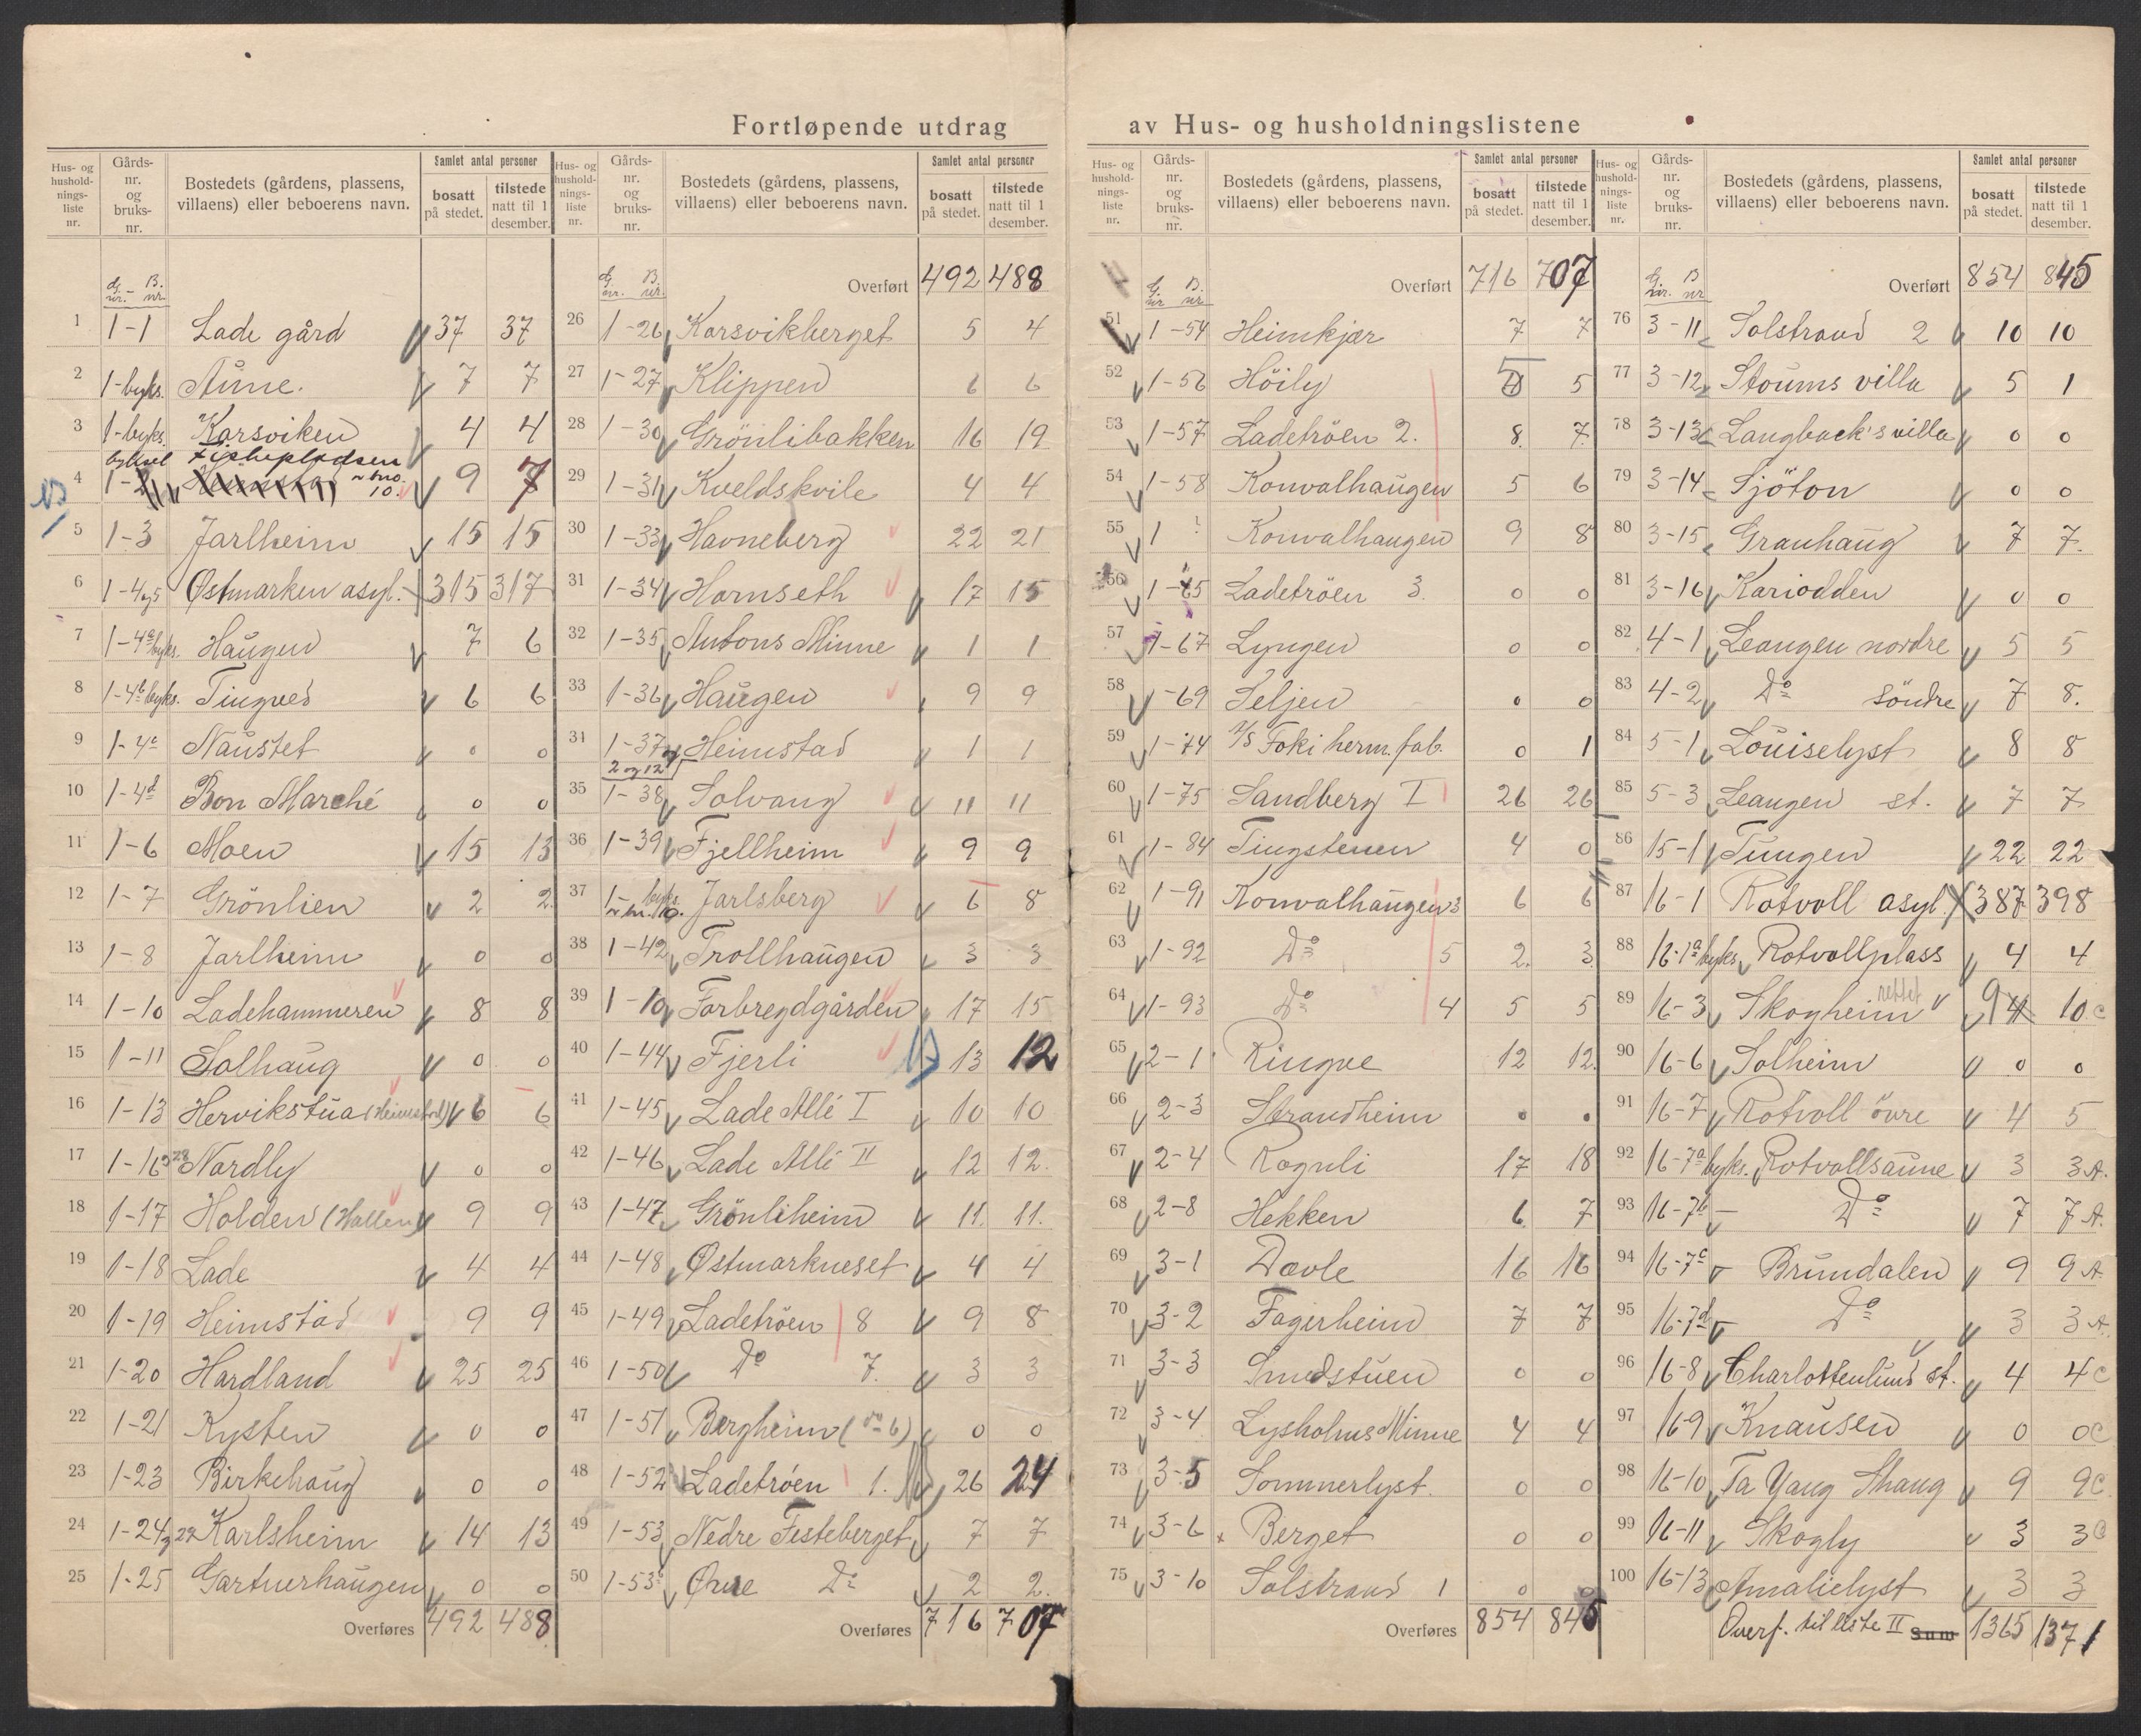 Fortløpende utdrag av Hus- og husholdningslistene
Hus- og husholdnings-liste nr. | Gårds-nr. og bruks-nr. | Bostedets (gårdens, plassens, villaens) eller beboerens navn. | Samlet antal personer | bosatt på stedet. | tilstede natt til 1 desember.
G. nr. – B. nr.
1 1-1 Lade gård 37 37
2 1-byks. Aune. 7 7
3 1-byks. Korsviken 4 4
4 byksel Fiskepladsen 9 7
5 1-3 Jarlheim 15 15
6 1-4og5 Østmarken asyl. 315 317
7 1-4a byks. Haugen 7 6
8 1-4b byks. Tingved 6 6
9 1-4c Naustet 0 0
10 1-4d Bon Marché 0 0
11 1-6 Moen 15 13
12 1-7 Grönlien 2 2
13 1-8 Jarlheim 0 0
14 1-10 Ladehammeren 8 8
15 1-11 Solhaug 0 0
16 1-13 Hervikstua (Heimstad) 6 6
17 1-16og28 Nordly 0 0
18 1-17 Holden (Hallen) 9 9
19 1-18 Lade 4 4
20 1-19 Heimstad 9 9
21 1-20 Hardland 25 25
22 1-21 Kysten 0 0
23 1-23 Birkehaug 0 0
24 1-24 Karlsheim 14 13
25 1-25 Gartnerhaugen 0 0
Overføres 492 488
Hus- og husholdnings-liste nr. | Gårds-nr. og bruks-nr. | Bostedets (gårdens, plassens, villaens) eller beboerens navn. | Samlet antal personer | bosatt på stedet. | tilstede natt til 1 desember.
G. nr. B. nr.
Overført 492 488
26 1-26 Korsvikberget 5 4
27 1-27 Klippen 6 6
28 1-30 Grönlibakken 16 19
29 1-31 Kveldskvile 4 4
30 1-33 Havneberg 22 21
31 1-34 Hornseth 17 15
32 1-35 Antons Minne 1 1
33 1-36 Haugen 9 9
34 1-37 og 2 og 12 Heimstad 1 1
35 1-38 Solvang 11 11
36 1-39 Fjellheim 9 9
37 1-byks. Jarlsberg 6 8
38 1-42 Trollhaugen 3 3
39 1-10 Forbregdgården 17 15
40 1-44 Fjerli 13 12
41 1-45 Lade Allé I 10 10
42 1-46 Lade Allé II 12 12.
43 1-47 Grönliheim 11. 11.
44 1-48 Østmarkneset 4 4
45 1-49 Ladetröen 8 9 8
46 1-50 Do 7. 3 3
47 1-51 Bergheim (do 6) 0 0
48 1-52 Ladetröen 1. 26 24
49 1-53 Nedre Festeberget 7 7
50 1-53 Övre Do 2 2.
Overføres 716 707
Hus- og husholdnings-liste nr. | Gårds-nr. og bruks-nr. | Bostedets (gårdens, plassens, villaens) eller beboerens navn. | Samlet antal personer | bosatt på stedet. | tilstede natt til 1 desember.
G. nr B. nr.
Overført 716 707
51 1-54 Heimkjær 7 7
52 1-56 Höily 5 5
53 1-57 Ladetröen 2. 8. 7
54 1-58 Konvalhaugen 5 6
55 1 ? Konvalhaugen 9 8
56 1-65 Ladetröen 3. 0 0
57 1-67 Lyngen 0 0
58 -69 Seljen 0 0
59 1-74 A/S Foki herm. fab. 0 1
60 1-75 Sandberg I 26 26
61 1-84 Tingstenen 4 0
62 1-91 Konvalhaugen 3 6 6
63 1-92 Do 5 2. 3.
64 1-93 Do 4 5 5
65 2-1 Ringve 12 12.
66 2-3 Strandheim 0 0
67 2-4 Rognli 17 18
68 2-8 Hekken 6 7
69 3-1 Devle 16 16
70 3-2 Fagerheim 7 7
71 3-3 Smedstuen 0 0
72 3-4 Lysholms Minne 4 4
73 3-5 Sommerlyst. 0 0
74 3-6 Berget 0 0
75 3-10 Solstrand 1 0 0
Overføres 854 845
Hus- og husholdnings-liste nr. | Gårds-nr. og bruks-nr. | Bostedets (gårdens, plassens, villaens) eller beboerens navn. | Samlet antal personer | bosatt på stedet. | tilstede natt til 1 desember.
G. nr. B nr
Overført 854 845
76 3-11 Solstrand 2 10 10
77 3-12 Stoums villa 5 1
78 3-13 Langback's villa 0 0
79 3-14 Sjöton 0 0
80 3-15 Granhaug 7 7.
81 3-16 Kariodden 0 0
82 4-1 Leangen nordre 5 5
83 4-2 Do söndre 7 8.
84 5-1 Louiselyst 8 8
85 5-3 Leangen st. 7 7
86 15-1 Tungen 22 22
87 16-1 Rotvoll asyl. 387 398
88 16-1a byks. Rotvollplass 4 4
89 16-3 Skogheim rettet 9 10 c
90 16-6 Solheim 0 0
91 16-7 Rotvoll övre 4 5
92 16-7a byks. Rotvollsaune 3 3 A.
93 16-7b – Do 7 7 A.
94 16-7c – Brundalen 9 9 A
95 16-7d – Do 3 3 A.
96 16-8 Charlottenlund st. 4 4 C
97 16-9 Knausen 0 0 C
98 16-10 Ta Yang Shang 9 9 C.
99 16-11 Skogly 3 3 C
100 16-13 Amalielyst 3 3
Overf. til liste II Sum 1365 1371